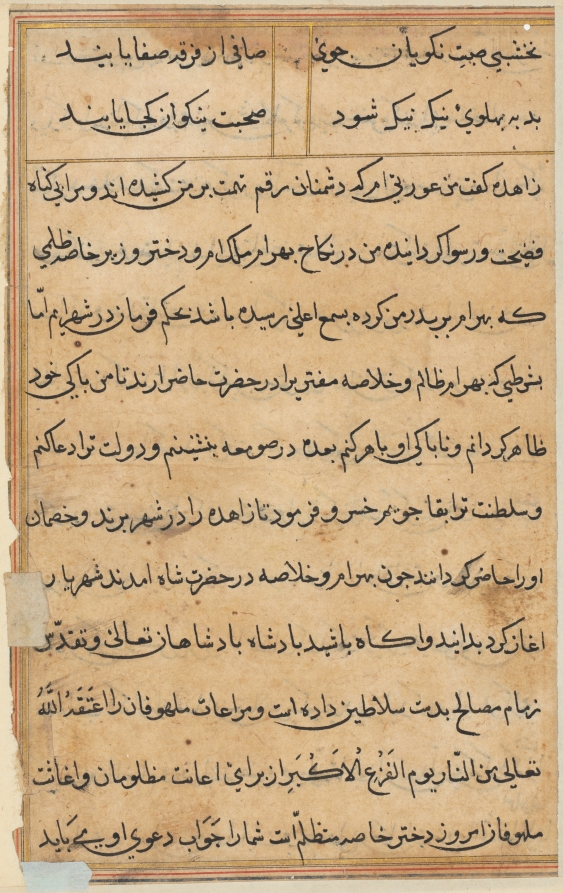 نخشبی صحبت نکویان جوی صافی از فرقه صفا یابند
بد به پهلوئ نیک نیک شود صحبت نیکوان کجا یابند
زاهده کفت من عورتی ام که دشمنان رقم تهمت بر من کشیده اند و مرا بی کناه
فضیحت و رسوا کردانیده من در نکاح بهرام ملک ام و دختر وزیر خاصه ظلمی
که بهرام بر پدر من کرده بسمع اعلی رسیده باشد بحکم فرمان در شهرایم امّا
بشرطی که بهرام ظالم و خلاصه مفتری را در حضرت حاضر ارند تا من پاکی خود
ظاهر کردانم و ناپاکی او باهر کنم بعده در صومعه بنشینم و دولت ترا دعا کنم
و سلطنت ترا بقا جویم خسرو فرمود تا زاهده را در شهر برند و خصمان
او را حاضر کردانند جون بهرام و خلاصه در حضرت شاه امدند شهریار
اغاز کرد بدانید و اکاه باشید پادشاه پادشاهان تعالی و تقدّس
زمام مصالح بدست سلاطین داده است و مراعات ملهوفان را اعتَقَدُ اللّٰهُ
تعالی من النّار یوم الفَزَع الاَکبَر از برای اعانت مظلومان و اغاثت
ملهوفان امروز دختر خاصه متظلّم است شما را جَوَاب دعوی او می باید